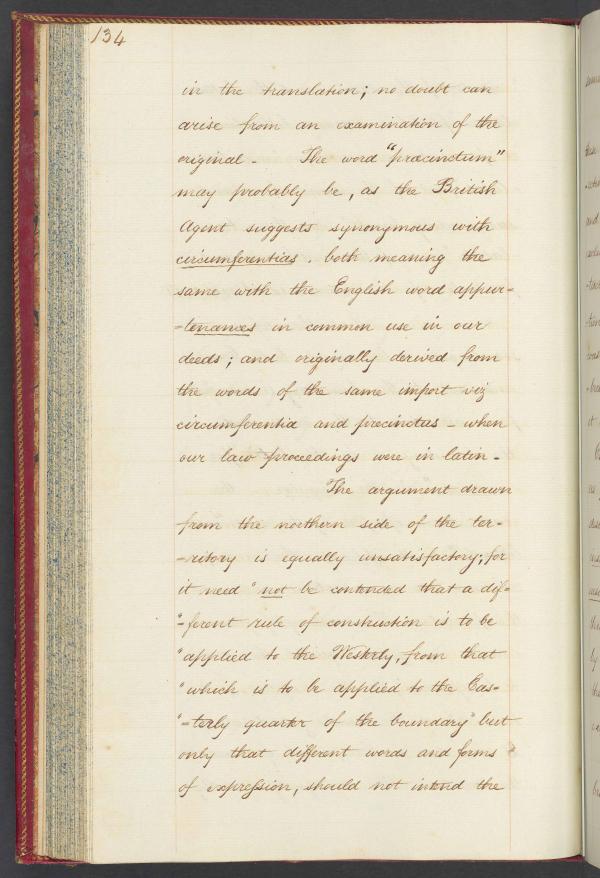 134
in the translation; no doubt can
arise from an examination of the
original - The word "præcinctum"
may probably be, as the British
Agent suggests synonymous with
circumferentias. both meaning the
same with the English word appur-
-tenances in common use in our
deeds; and originally derived from
the words of the same import viz
circumferentia and precinctus - when
our law proceedings were in latin -
The argument drawn
from the northern side of the ter-
-ritory is equally unsatisfactory; for
it need "not be contended that a dif-
"-ferent rule of construction is to be
"applied to the Westerly, from that
"which is to be applied to the Eas-
"-terly quarter of the boundary" but
only that different words and forms
of expression, should not intend the